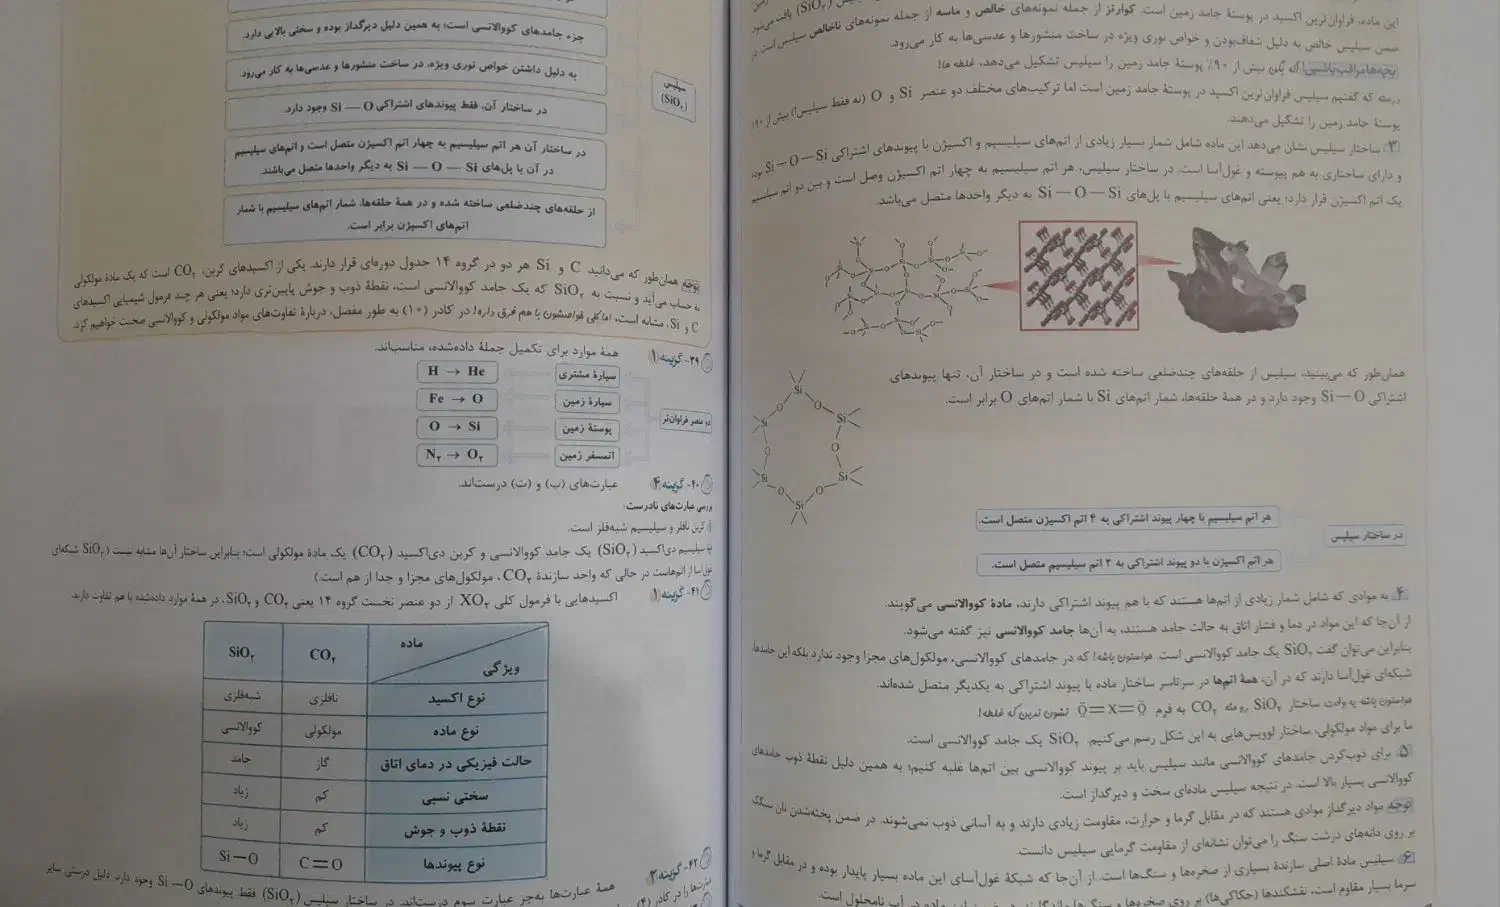 این ماده، فراوان‌ترین اکسید در پوستهٔ جامد زمین است. کوارتز از جمله نمونه‌های خالص و ماسه از جمله نمونه‌های ناخالص سیلیس است. در
ضمن سیلیس خالص به دلیل شفاف‌بودن و خواص نوری ویژه در ساخت منشورها و عدسی‌ها به کار می‌رود.
بچه‌ها مراقب باشین! اگه بگن بیش از ۹۰٪ پوستهٔ جامد زمین را سیلیس تشکیل می‌دهد، غلطه ها!
درسته که گفتیم سیلیس فراوان‌ترین اکسید در پوستهٔ جامد زمین است اما ترکیب‌های مختلف دو عنصر Si و O (نه فقط سیلیس!) بیش از ۹۰٪
پوستهٔ جامد زمین را تشکیل می‌دهند.
۳ ساختار سیلیس نشان می‌دهد این ماده شامل شمار بسیار زیادی از اتم‌های سیلیسیم و اکسیژن با پیوندهای اشتراکی Si — O — Si بوده
و دارای ساختاری به هم پیوسته و غول‌آسا است. در ساختار سیلیس، هر اتم سیلیسیم به چهار اتم اکسیژن وصل است و بین دو اتم سیلیسیم
یک اتم اکسیژن قرار دارد؛ یعنی اتم‌های سیلیسیم با پل‌های Si — O — Si به دیگر واحدها متصل می‌باشد.
همان‌طور که می‌بینید، سیلیس از حلقه‌های چندضلعی ساخته شده است و در ساختار آن، تنها پیوندهای
اشتراکی Si — O وجود دارد و در همهٔ حلقه‌ها، شمار اتم‌های Si با شمار اتم‌های O برابر است.
هر اتم سیلیسیم با چهار پیوند اشتراکی به ۴ اتم اکسیژن متصل است.
در ساختار سیلیس
هر اتم اکسیژن با دو پیوند اشتراکی به ۲ اتم سیلیسیم متصل است.
۴ به موادی که شامل شمار زیادی از اتم‌ها هستند که با هم پیوند اشتراکی دارند، مادهٔ کووالانسی می‌گویند.
از آن‌جا که این مواد در دما و فشار اتاق به حالت جامد هستند، به آن‌ها جامد کووالانسی نیز گفته می‌شود.
بنابراین می‌توان گفت SiO۲ یک جامد کووالانسی است. حواستون باشه! که در جامدهای کووالانسی، مولکول‌های مجزا وجود ندارد بلکه این جامدها،
شبکه‌ای غول‌آسا دارند که در آن، همهٔ اتم‌ها در سرتاسر ساختار ماده با پیوند اشتراکی به یکدیگر متصل شده‌اند.
حواستون باشه یه وقت ساختار SiO۲ رو مثه CO۲ به فرم O=X=O نشون ندین که غلطه!
ما برای مواد مولکولی، ساختار لوویس‌هایی به این شکل رسم می‌کنیم. SiO۲ یک جامد کووالانسی است.
۵ برای ذوب‌کردن جامدهای کووالانسی مانند سیلیس باید بر پیوند کووالانسی بین اتم‌ها غلبه کنیم؛ به همین دلیل نقطهٔ ذوب جامدهای
کووالانسی بسیار بالا است. در نتیجه سیلیس ماده‌ای سخت و دیرگداز است.
توجه مواد دیرگداز موادی هستند که در مقابل گرما و حرارت، مقاومت زیادی دارند و به آسانی ذوب نمی‌شوند. در ضمن پخته‌شدن نان سنگک
بر روی دانه‌های درشت سنگ را می‌توان نشانه‌ای از مقاومت گرمایی سیلیس دانست.
۶ سیلیس مادهٔ اصلی سازندهٔ بسیاری از صخره‌ها و سنگ‌ها است. از آن‌جا که شبکهٔ غول‌آسای این ماده بسیار پایدار بوده و در مقابل گرما و
سرما بسیار مقاوم است، نقشکندها (حکاکی‌ها) بر روی صخره‌ها و
جزء جامدهای کووالانسی است؛ به همین دلیل دیرگداز بوده و سختی بالایی دارد.
به دلیل داشتن خواص نوری ویژه، در ساخت منشورها و عدسی‌ها به کار می‌رود.
سیلیس (SiO۲)
در ساختار آن، فقط پیوندهای اشتراکی Si — O وجود دارد.
در ساختار آن هر اتم سیلیسیم به چهار اتم اکسیژن متصل است و اتم‌های سیلیسیم
در آن با پل‌های Si — O — Si به دیگر واحدها متصل می‌باشند.
از حلقه‌های چندضلعی ساخته شده و در همهٔ حلقه‌ها، شمار اتم‌های سیلیسیم با شمار
اتم‌های اکسیژن برابر است.
توجه همان‌طور که می‌دانید C و Si هر دو در گروه ۱۴ جدول دوره‌ای قرار دارند. یکی از اکسیدهای کربن، CO۲ است که یک مادهٔ مولکولی
به حساب می‌آید و نسبت به SiO۲ که یک جامد کووالانسی است، نقطهٔ ذوب و جوش پایین‌تری دارد؛ یعنی هر چند فرمول شیمیایی اکسیدهای
C و Si، مشابه است، اما کلی خواصشون با هم فرق داره! در کادر (۱۰) به طور مفصل، دربارهٔ تفاوت‌های مواد مولکولی و کووالانسی صحبت خواهیم کرد.
۳۹- گزینه ۱ همهٔ موارد برای تکمیل جملهٔ داده‌شده، مناسب‌اند.
دو عنصر فراوان‌تر
سیارهٔ مشتری H → He
سیارهٔ زمین Fe → O
پوستهٔ زمین O → Si
اتمسفر زمین N۲ → O۲
۴۰- گزینه ۴ عبارت‌های (ب) و (ت) درست‌اند.
بررسی عبارت‌های نادرست:
کربن نافلز و سیلیسیم شبه‌فلز است.
سیلیسیم دی‌اکسید (SiO۲) یک جامد کووالانسی و کربن دی‌اکسید (CO۲) یک مادهٔ مولکولی است؛ بنابراین ساختار آن‌ها مشابه نیست (SiO۲ شبکه‌ای
غول‌آسا از اتم‌هاست در حالی که واحد سازندهٔ CO۲، مولکول‌های مجزا و جدا از هم است.)
۴۱- گزینه ۱ اکسیدهایی با فرمول کلی XO۲ از دو عنصر نخست گروه ۱۴ یعنی CO۲ و SiO۲، در همهٔ موارد داده‌شده با هم تفاوت دارند.
ماده ویژگی CO۲ SiO۲
نوع اکسید نافلزی شبه‌فلزی
نوع ماده مولکولی کووالانسی
حالت فیزیکی در دمای اتاق گاز جامد
سختی نسبی کم زیاد
نقطهٔ ذوب و جوش کم زیاد
نوع پیوندها C=O Si—O
۴۲- گزینه ۲ همهٔ عبارت‌ها به‌جز عبارت سوم درست‌اند. در ساختار سیلیس (SiO۲) فقط پیوندهای Si — O وجود دارد. دلیل درستی سایر
عبارت‌ها را در کادر